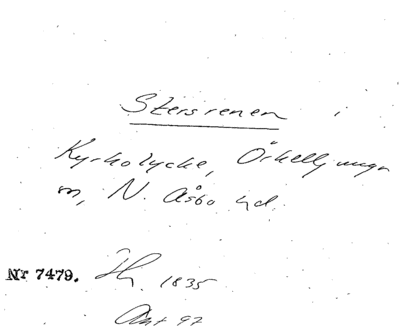 Stersrenen i
Kyrkolycke, Örkelljunga
sn, N. Åsbo hd.
Nr 7479. Th. 1835
Ant 97